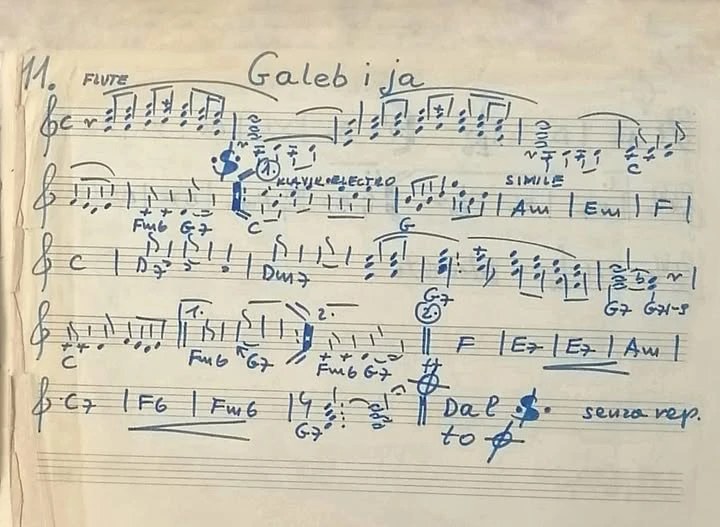 11. FLUTE Galeb i ja
C
1. KLAVIR-ELECTRO SIMILE
C
Fm6 G7 C G Am Em F
C D7 Dm7 G7 G7 G7/-9
1. 2. 2.
C Fm6 G7 Fm6 G7 F E7 E7 Am
C7 F6 Fm6 G7 Dal S. senza rep.
to